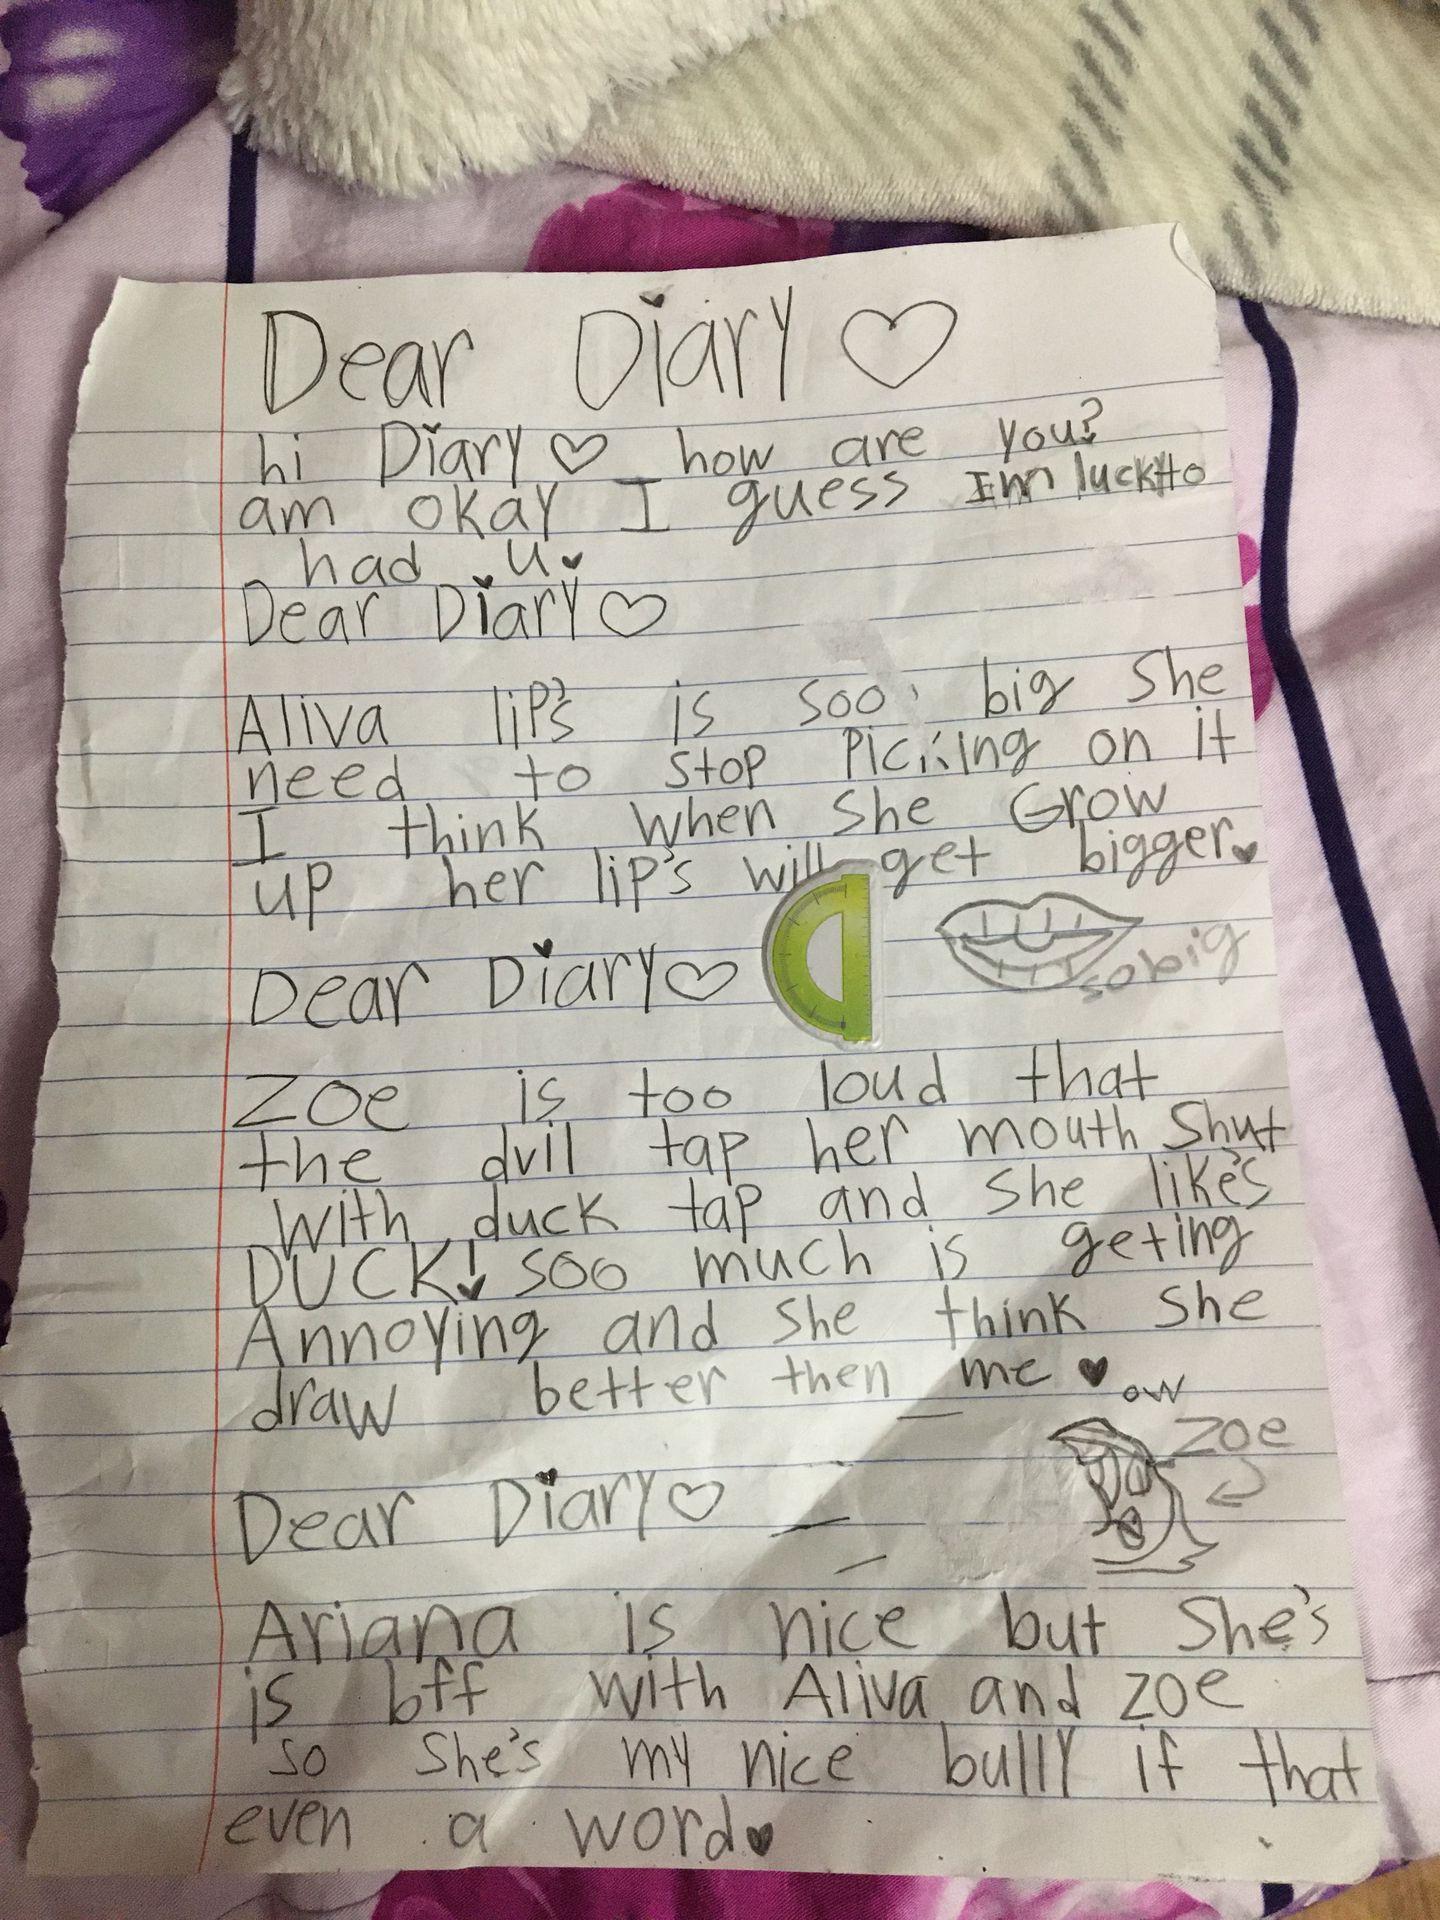 Dear Diary
hi Diary how are you?
am okay I guess I'm luck to
had u.
Dear Diary
Aliva lip's is soo big She
need to stop Picking on it
I think when she Grow
up her lip's will get bigger.
so big
Dear Diary
Zoe is too loud that
the dvil tap her mouth Shut
with duck tap and she like's
DUCK! soo much is geting
Annoying and she think she
draw better then me
ow
Zoe
Dear Diary
Ariana is nice but She's
is bff with Aliva and zoe
so She's my nice bully if that
even a word